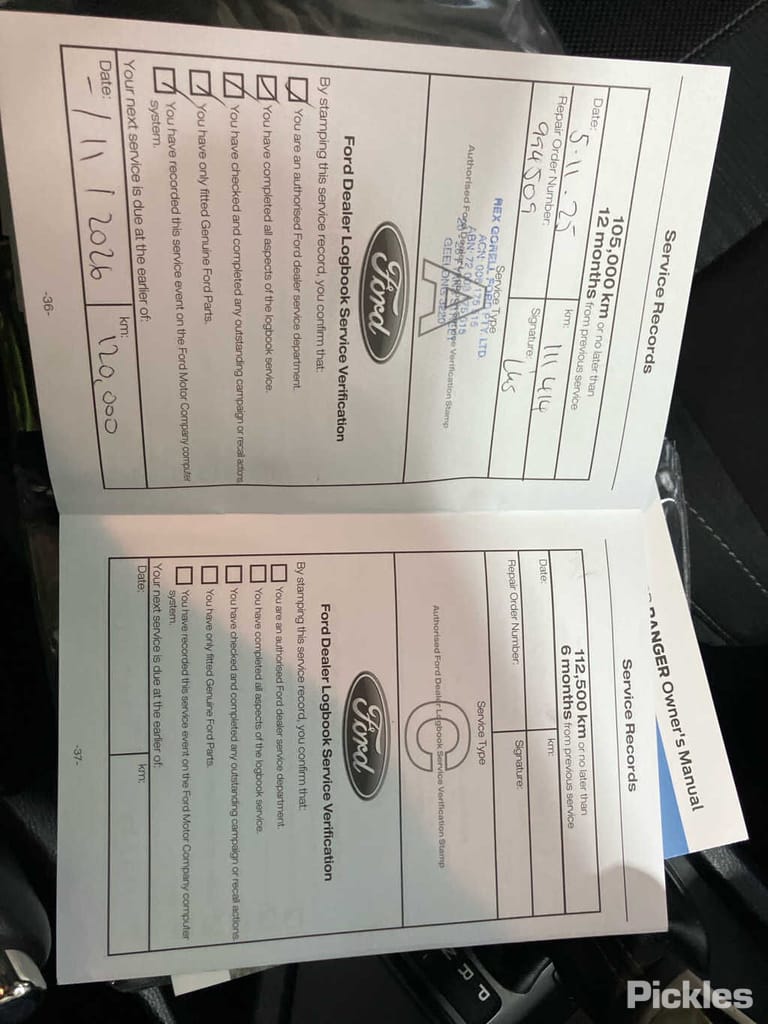 Service Records
105,000 km or no later than
12 months from previous service
Date: 5-11.25
km: 111414
Repair Order Number: 994509
Signature:
Service Type
A
REX GORELL FORD PTY. LTD
GEELONG 3220
Authorised Ford Dealer Logbook Service Verification Stamp
Ford
Ford Dealer Logbook Service Verification
By stamping this service record, you confirm that:
You are an authorised Ford dealer service department.
You have completed all aspects of the logbook service.
You have checked and completed any outstanding campaign or recall actions.
You have only fitted Genuine Ford Parts.
You have recorded this service event on the Ford Motor Company computer
system.
Your next service is due at the earlier of:
Date: - / 11 / 2026
km: 120,000
-36-
Service Records
112,500 km or no later than
6 months from previous service
Date:
km:
Repair Order Number:
Signature:
Service Type
C
Authorised Ford Dealer Logbook Service Verification Stamp
Ford
Ford Dealer Logbook Service Verification
By stamping this service record, you confirm that:
You are an authorised Ford dealer service department.
You have completed all aspects of the logbook service.
You have checked and completed any outstanding campaign or recall actions.
You have only fitted Genuine Ford Parts.
You have recorded this service event on the Ford Motor Company computer
system.
Your next service is due at the earlier of:
Date:
km:
-37-
RANGER Owner's Manual
P R N
Pickles